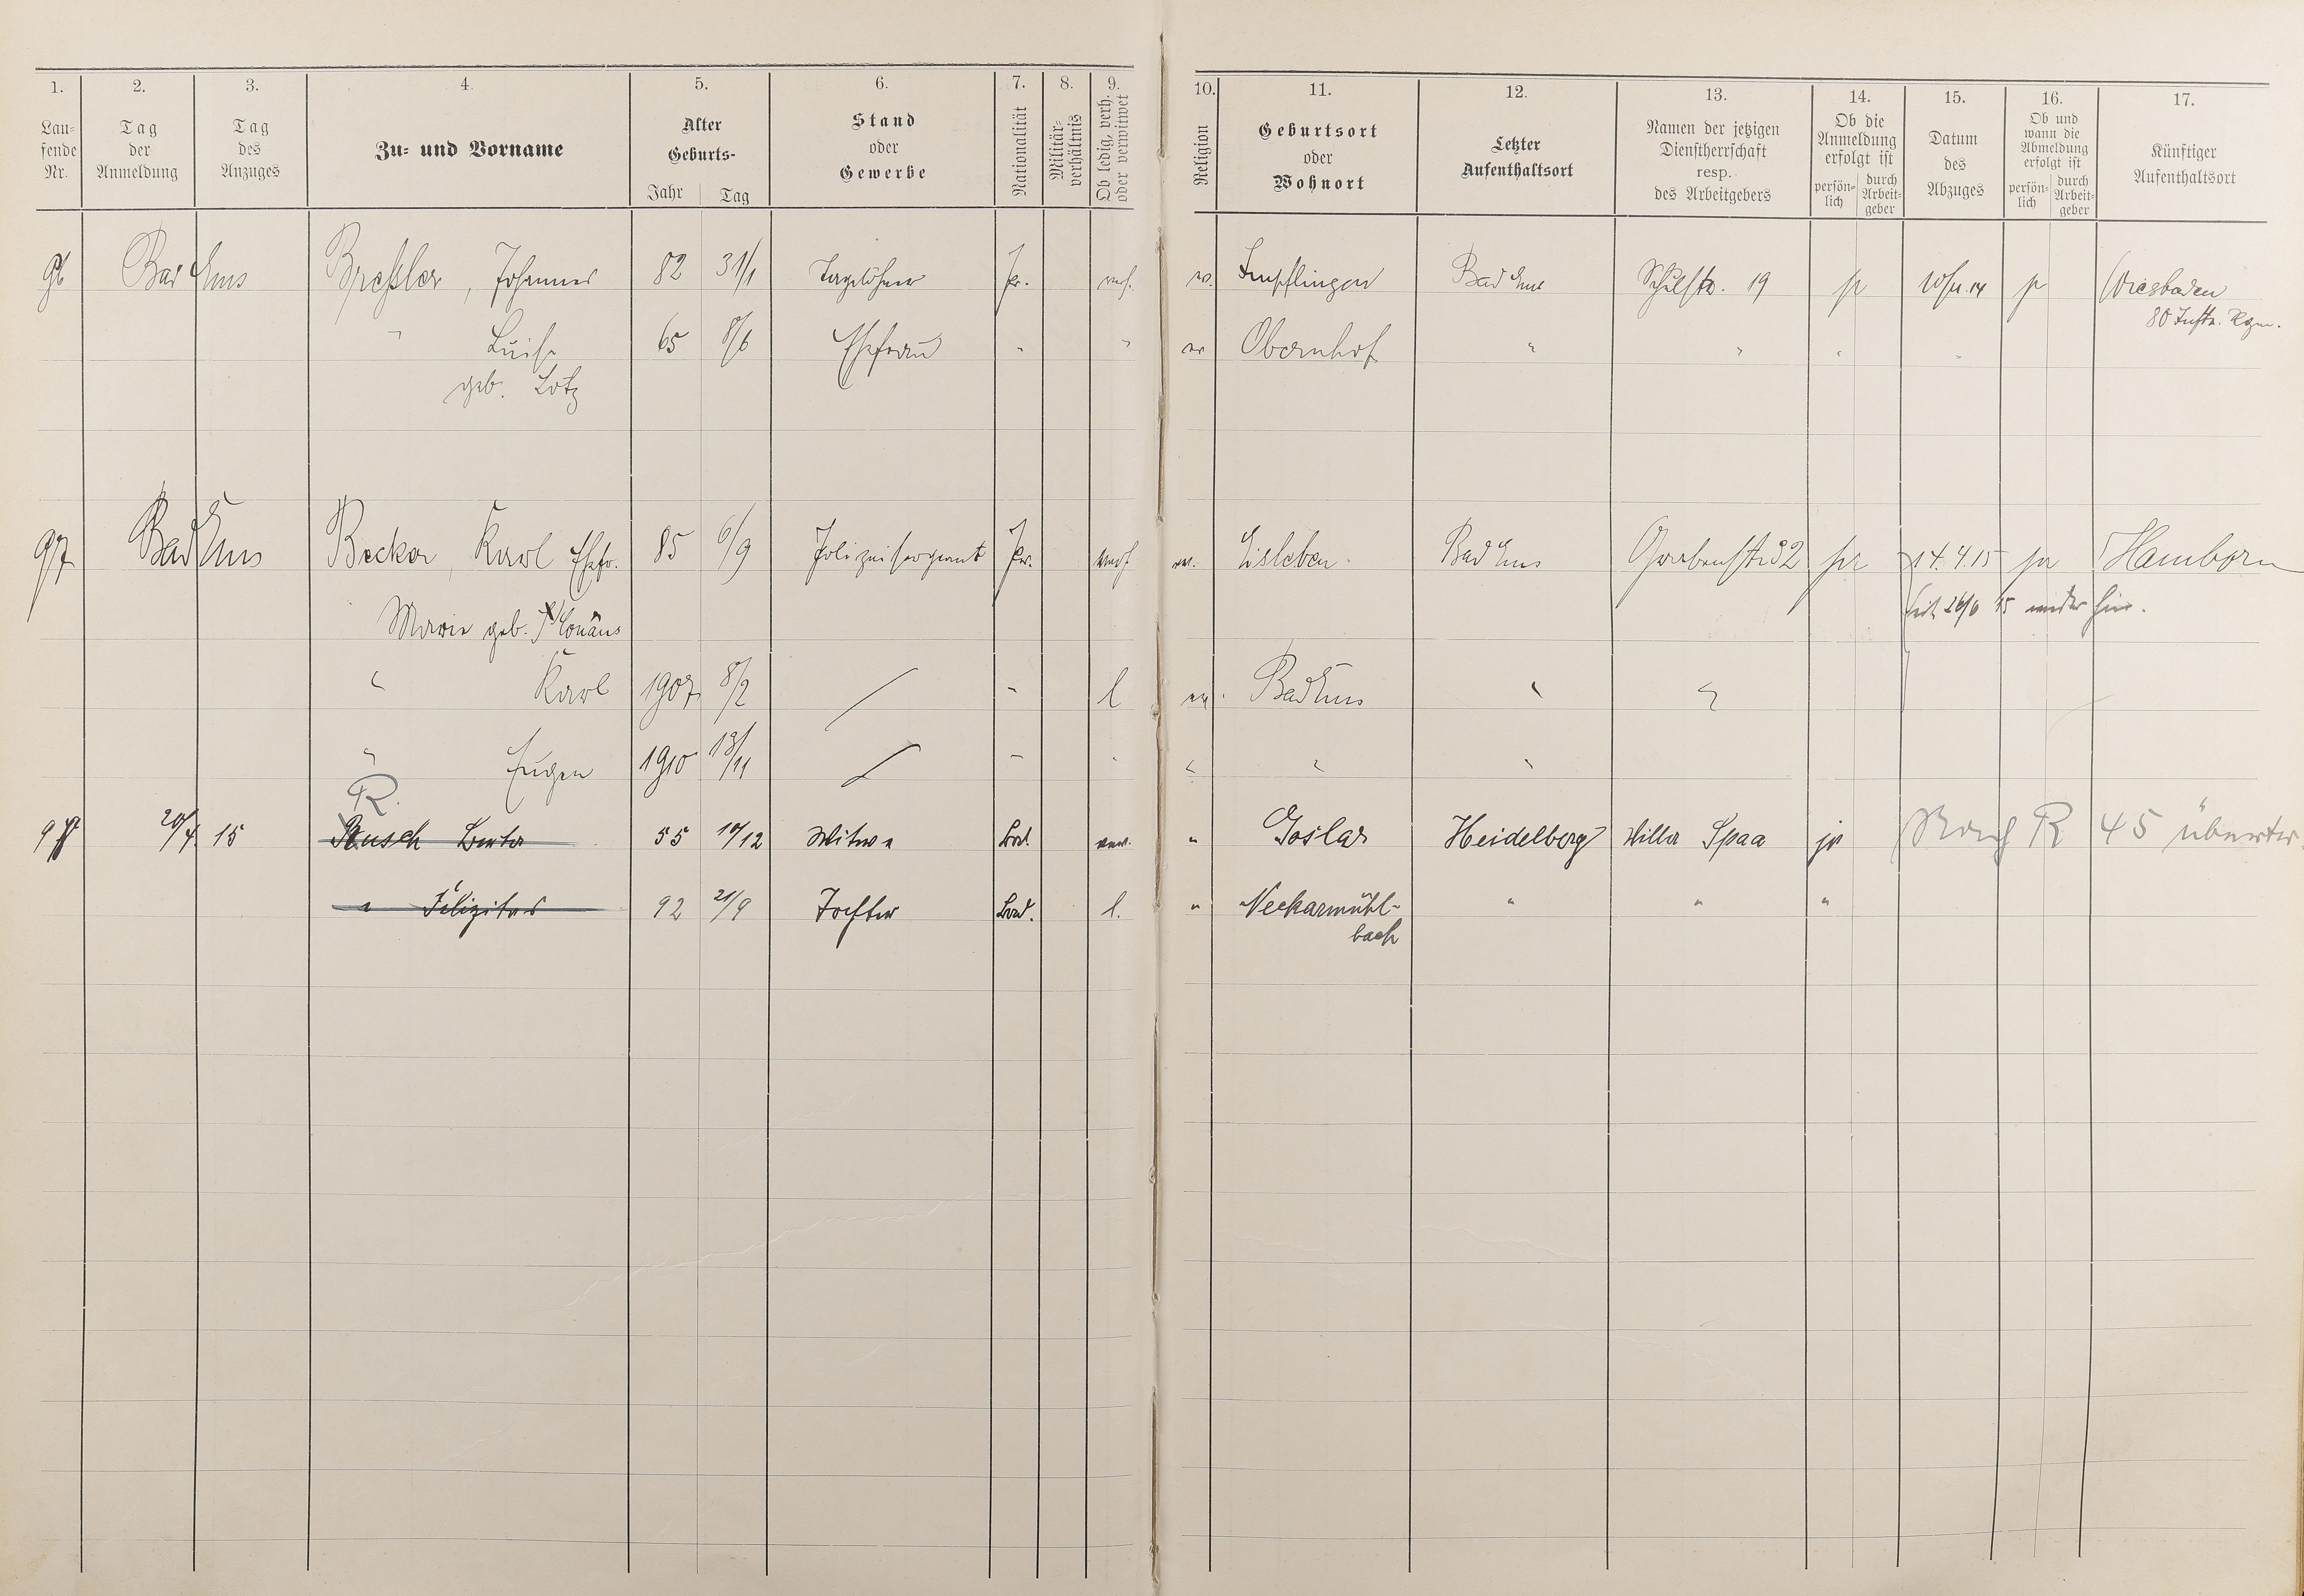 1. 2. 3. 4. 5. 6. 7. 8. 9. 10. 11. 12. 13. 14. 15. 16. 17.
Laufende Nr.
Tag der Anmeldung
Tag des Anzuges
Zu- und Vorname
Alter
Geburts-
Jahr Tag
Stand oder Gewerbe
Nationalität
Militär-verhältnis
Ob ledig, verh. oder verwitwet
Religion
Geburtsort oder Wohnort
Letzter Aufenthaltsort
Namen der jetzigen Dienstherrschaft resp. des Arbeitgebers
Ob die Anmeldung erfolgt ist
persön-lich durch Arbeit-geber
Datum des Abzuges
Ob und wann die Abmeldung erfolgt ist
persön-lich durch Arbeit-geber
Künftiger Aufenthaltsort
96 Bad Ems Breßler, Johannes 82 31/1 Taglöhner Pr. verh. ev. Impflingen Bad Ems Schulstr. 19 p 14 p Wiesbaden
80 Inftr. Rgm.
" Luise 65 8/6 Ehefrau " " ev Obernhof " " " "
geb. Lotz
97 Bad Ems Becker, Karl Ehefr. 85 6/9 Polizeisergeant Pr. verh ev. Eisleben Bad Ems Grabenstr 32 pr 14.4.15 pr Hamborn
Marie geb. seit 26/6 15 wieder hier.
" Karl 1907 8/2 " l ev. Bad Ems " "
" Eugen 1910 13/11 " " " " "
R.
97 20/4. 15 Busch Berta 55 10/12 Witwe Bad. verw. " Goslar Heidelberg Villa Spaa pr Nach R 45 übertr.
" Felizitas 92 21/9 Tochter Bad. l. " Neckarmühl- " " "
bach